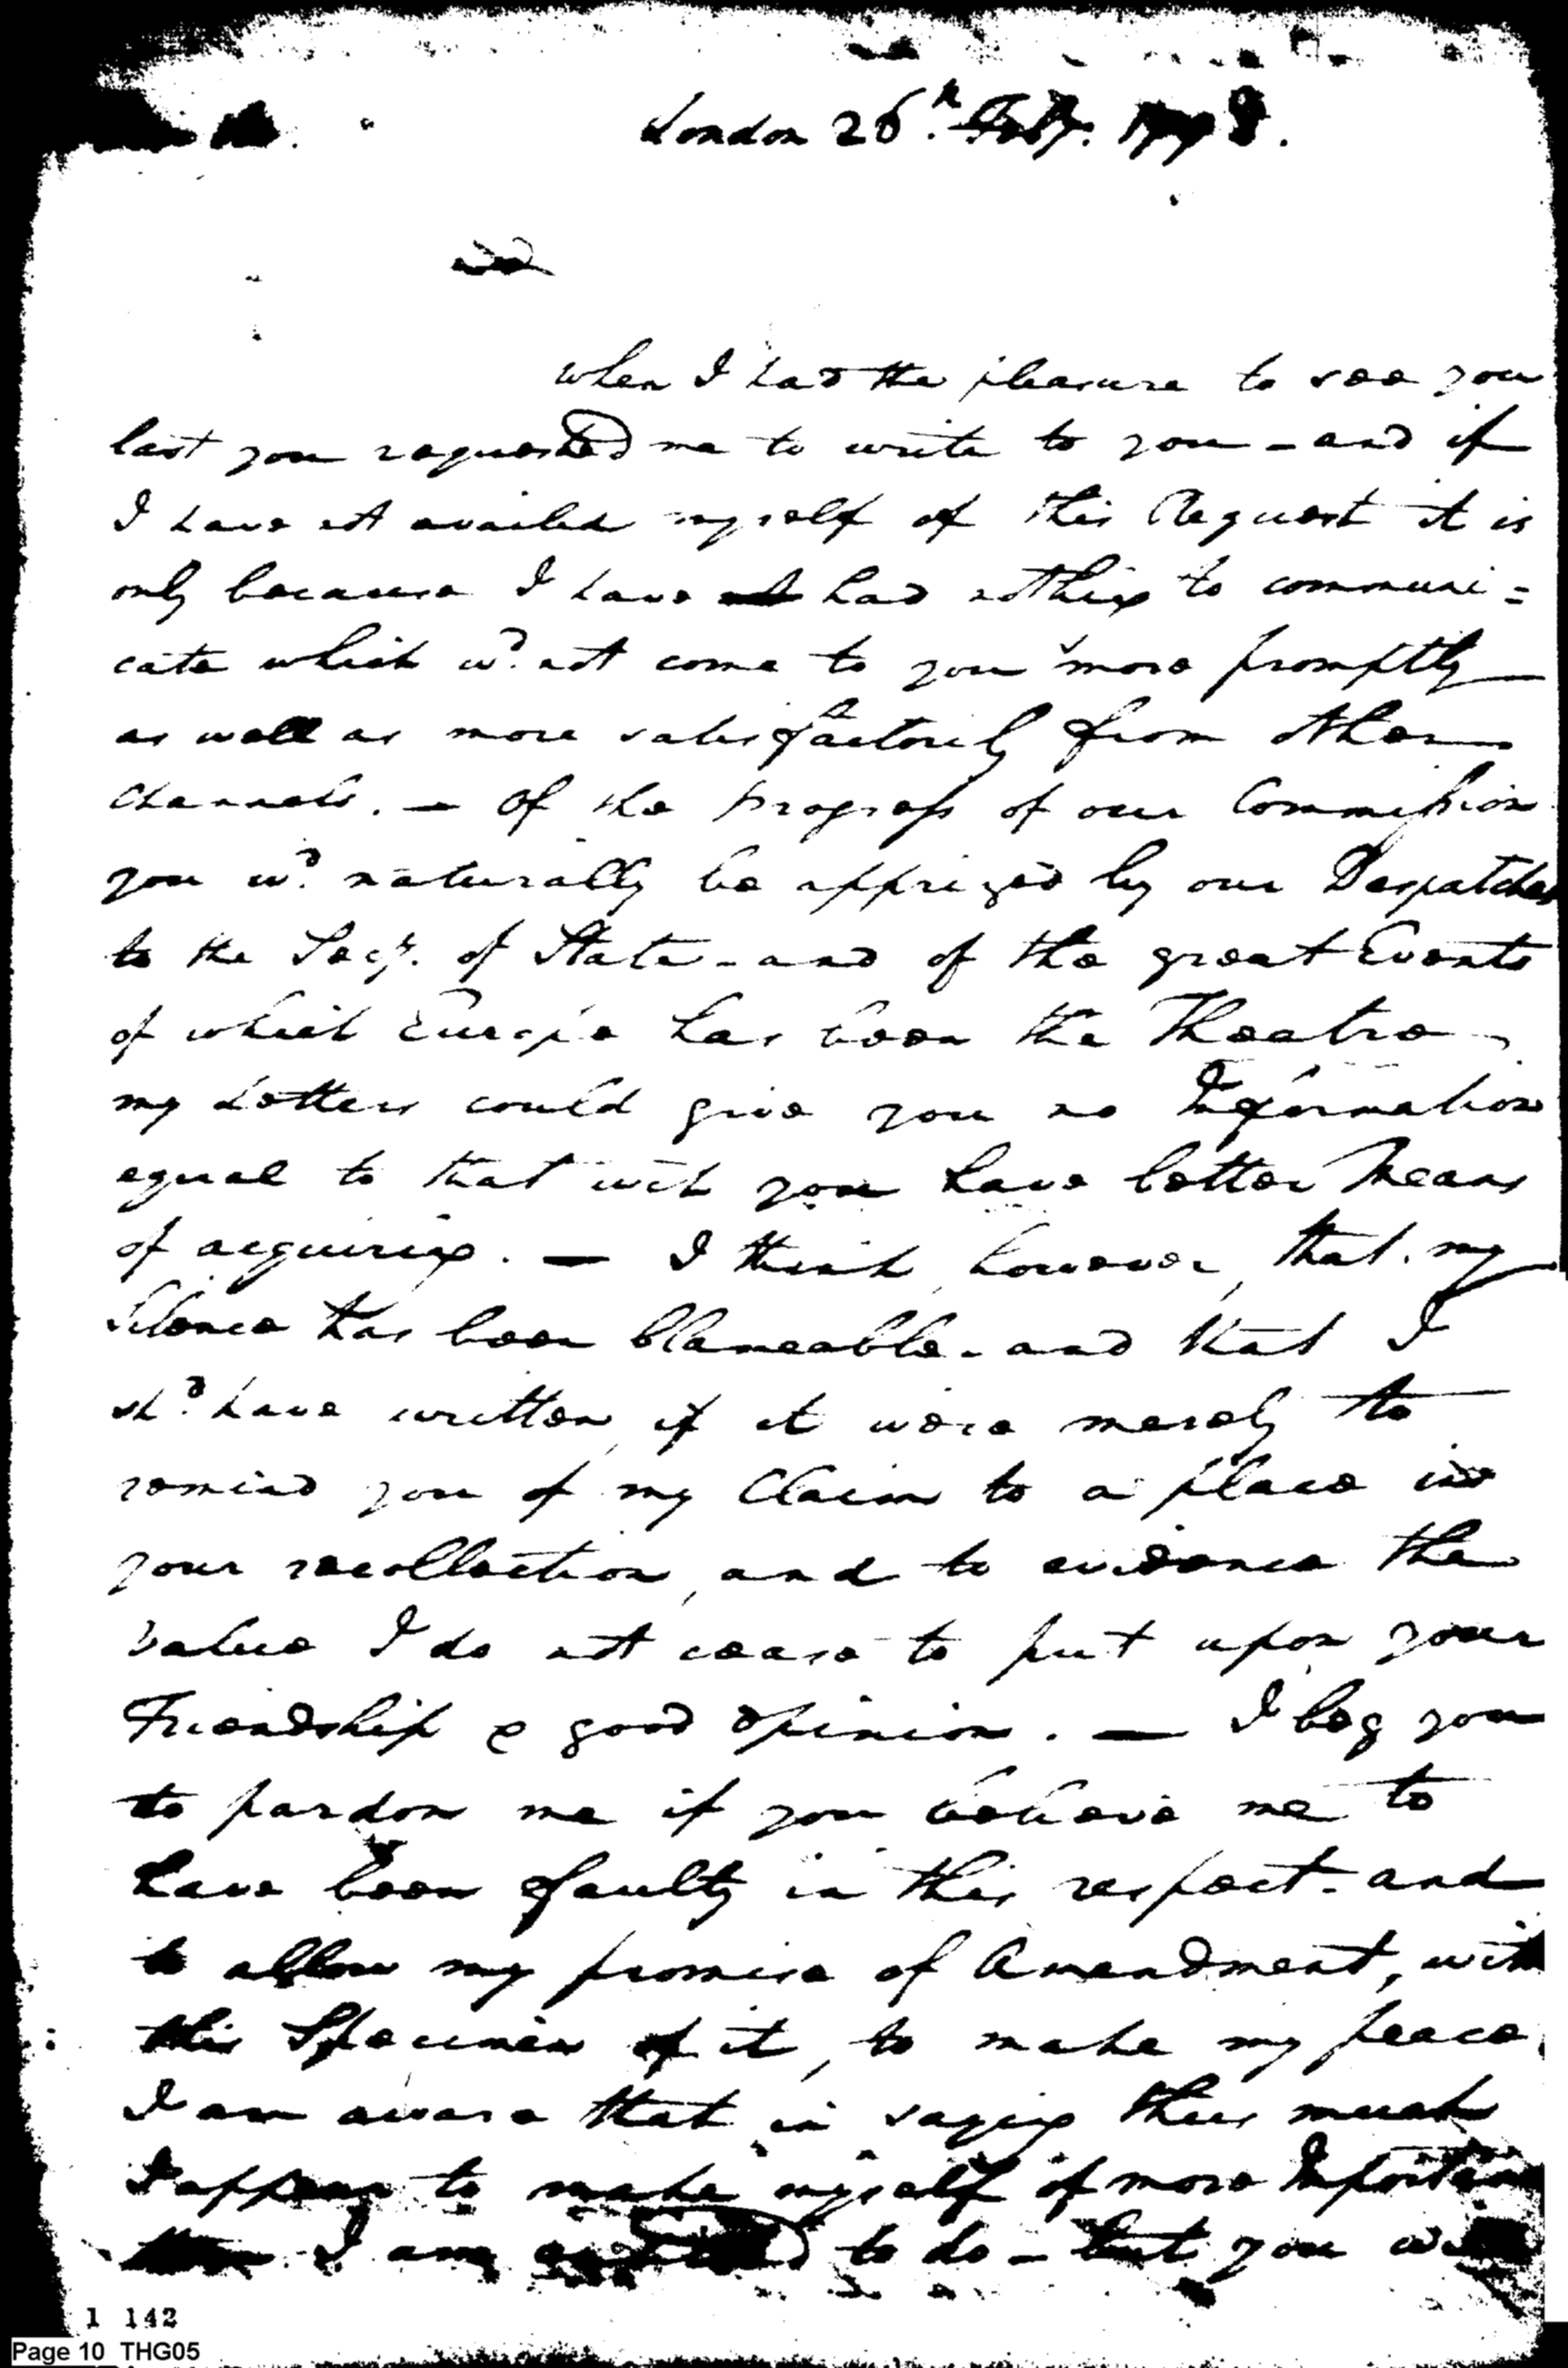 London 26.th Feby. 1798.
Sir
when I had the pleasure to see you
last you requested me to write to you - and if
I have not availed myself of this Request it is
only because I have had nothing to communi =
cate which wd. not come to you more promptly
as well as more satisfactorily from other
Channels. — Of the progress of our Commission
you wd. naturally be apprized by our Despatches
to the Secy. of State - and of the great Events
of which Europe has been the Theatre,
my Letters could give you no Information
equal to that wch you have better Means
of acquiring. — I think, however, that my
Silence has been blameable - and that I
shd. have written, if it were merely to
remind you of my Claim to a place in
your recollection, and to evidence the
Value I do not cease to put upon your
Friendship & good opinion. — I beg you
to pardon me if you believe me to
have been faulty in this respect - and
to allow my promise of Amendment, with
this Specimen of it, to make my peace.
I am aware that in saying thus much
I appear to make myself of more Importance
than I am entitled to do - but you
1 142
Page 10 THG05